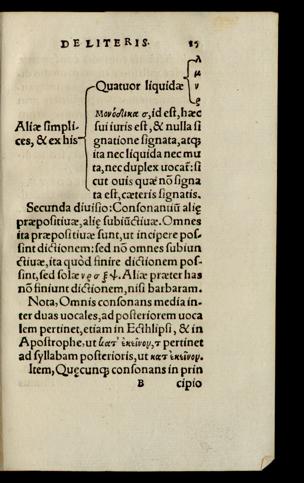 DE LITERIS.
λ
μ
Quatuor liquidæ
ν
ρ
Aliæ simpli-
ces, & ex his
Μονόδικα σ, id est, hæc
sui iuris est, & nulla si
gnatione signata, atq;
ita nec liquida nec mu
ta, nec duplex uocat̃: si
cut ouis quæ nõ signa
ta est, cæteris signatis.
Secunda diuisio: Consonantiũ alię
præpositiuæ, alię subiũctiuæ. Omnes
ita præpositiuæ sunt, ut incipere pos-
sint dictionem: sed nõ omnes subiun
ctiuæ, ita quòd finire dictionem pos-
sint, sed solæ ν ρ σ ξ ψ. Aliæ præter has
nõ finiunt dictionem, nisi barbaram.
Nota, Omnis consonans media in-
ter duas uocales, ad posteriorem uoca
lem pertinet, etiam in Ecthlipsi, & in
Apostrophe, ut κατ' ἐκεῖνου, τ pertinet
ad syllabam posterioris, ut κατ ἐκεῖνου.
Item, Quęcunq; consonans in prin
B
cipio